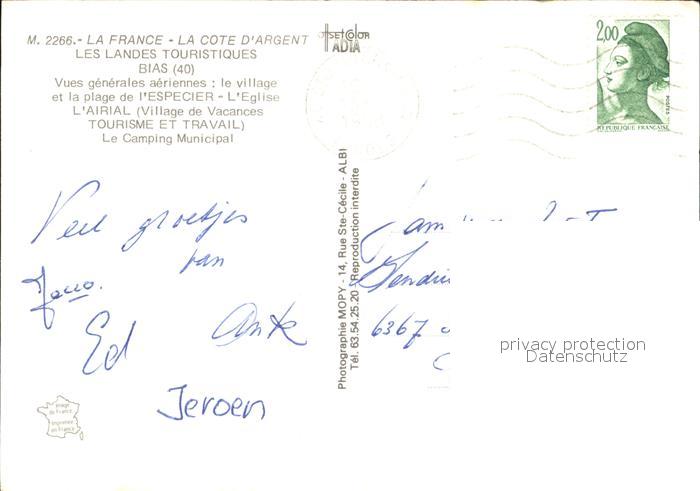 M. 2266.- LA FRANCE - LA COTE D'ARGENT
LES LANDES TOURISTIQUES
BIAS (40)
Vues générales aériennes : le village
et la plage de l'ESPECIER - L'Eglise
L'AIRIAL (Village de Vacances
TOURISME ET TRAVAIL)
Le Camping Municipal
offset color
ADIA
2,00
POSTES
REPUBLIQUE FRANÇAISE
Veel groetjes
van
Ed
Ank
Jeroen
Image
de France
Imprimé
en France
Photographie MOPY - 14, Rue Ste-Cécile - ALBI
Tél. 63.54.25.20 Reproduction interdite
Fam
6367
privacy protection
Datenschutz